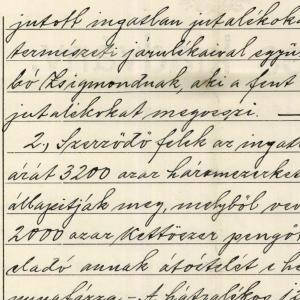 jutott ingatlan jutalékok
természeti járulékaival együ
bó Zsigmondnak, aki a fent
jutalékokat megveszi. —
2., Szerződő felek az ingat
árát 3200 azaz háromezerkes
állapitják meg, melyből vev
2000 azaz Kettőezer pengőt
eladó annak átvételét e h
A hátralékos